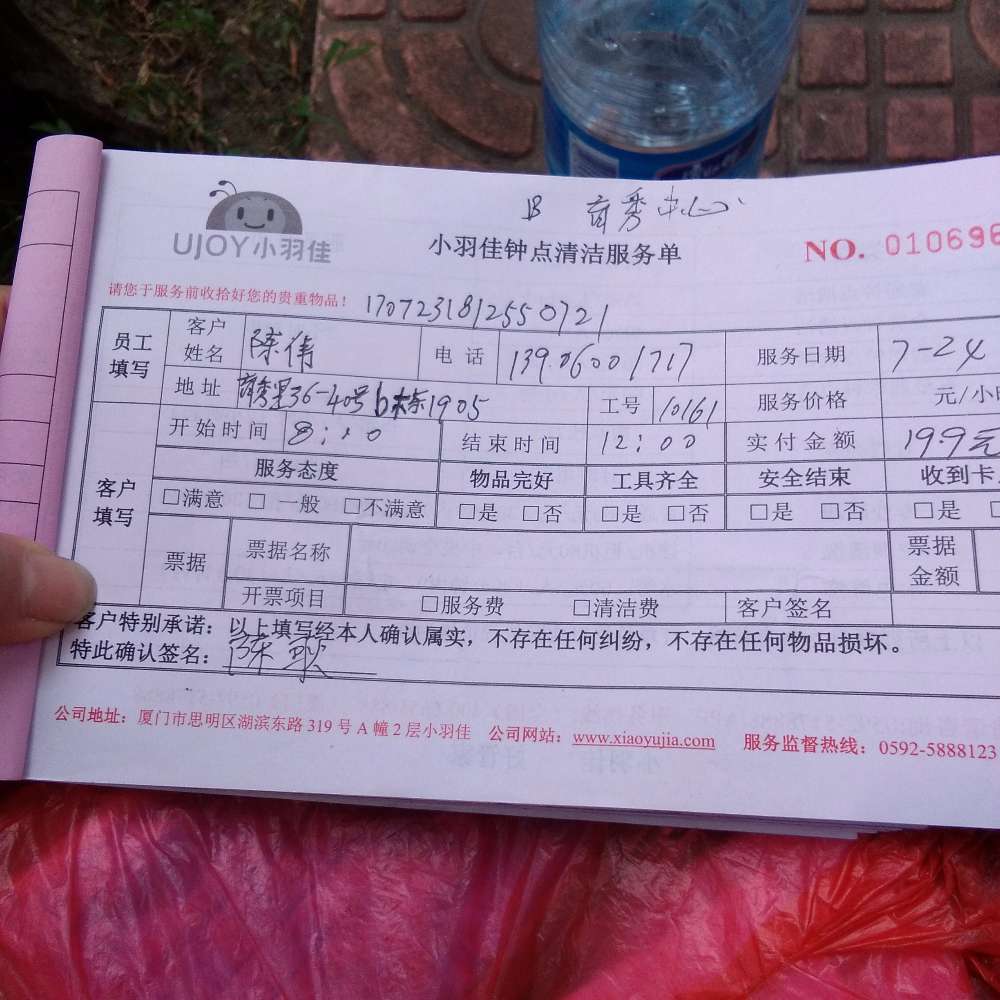 B 育秀中心
UJOY小羽佳
小羽佳钟点清洁服务单
NO. 010696
请您于服务前收拾好您的贵重物品！ 1707231812550721
员工填写 客户姓名 陈伟 电话 139.06001717 服务日期 7-24
地址 育秀里36-40号b栋1905 工号 10161 服务价格 元/小时
客户填写 开始时间 8:00 结束时间 12:00 实付金额 199元
服务态度 物品完好 工具齐全 安全结束 收到卡
□满意 □一般 □不满意 □是 □否 □是 □否 □是 □否 □是
票据 票据名称 票据金额
开票项目 □服务费 □清洁费 客户签名
客户特别承诺：以上填写经本人确认属实，不存在任何纠纷，不存在任何物品损坏。
特此确认签名：陈
公司地址：厦门市思明区湖滨东路 319 号 A 幢 2 层小羽佳 公司网站：www.xiaoyujia.com 服务监督热线：0592-5888123